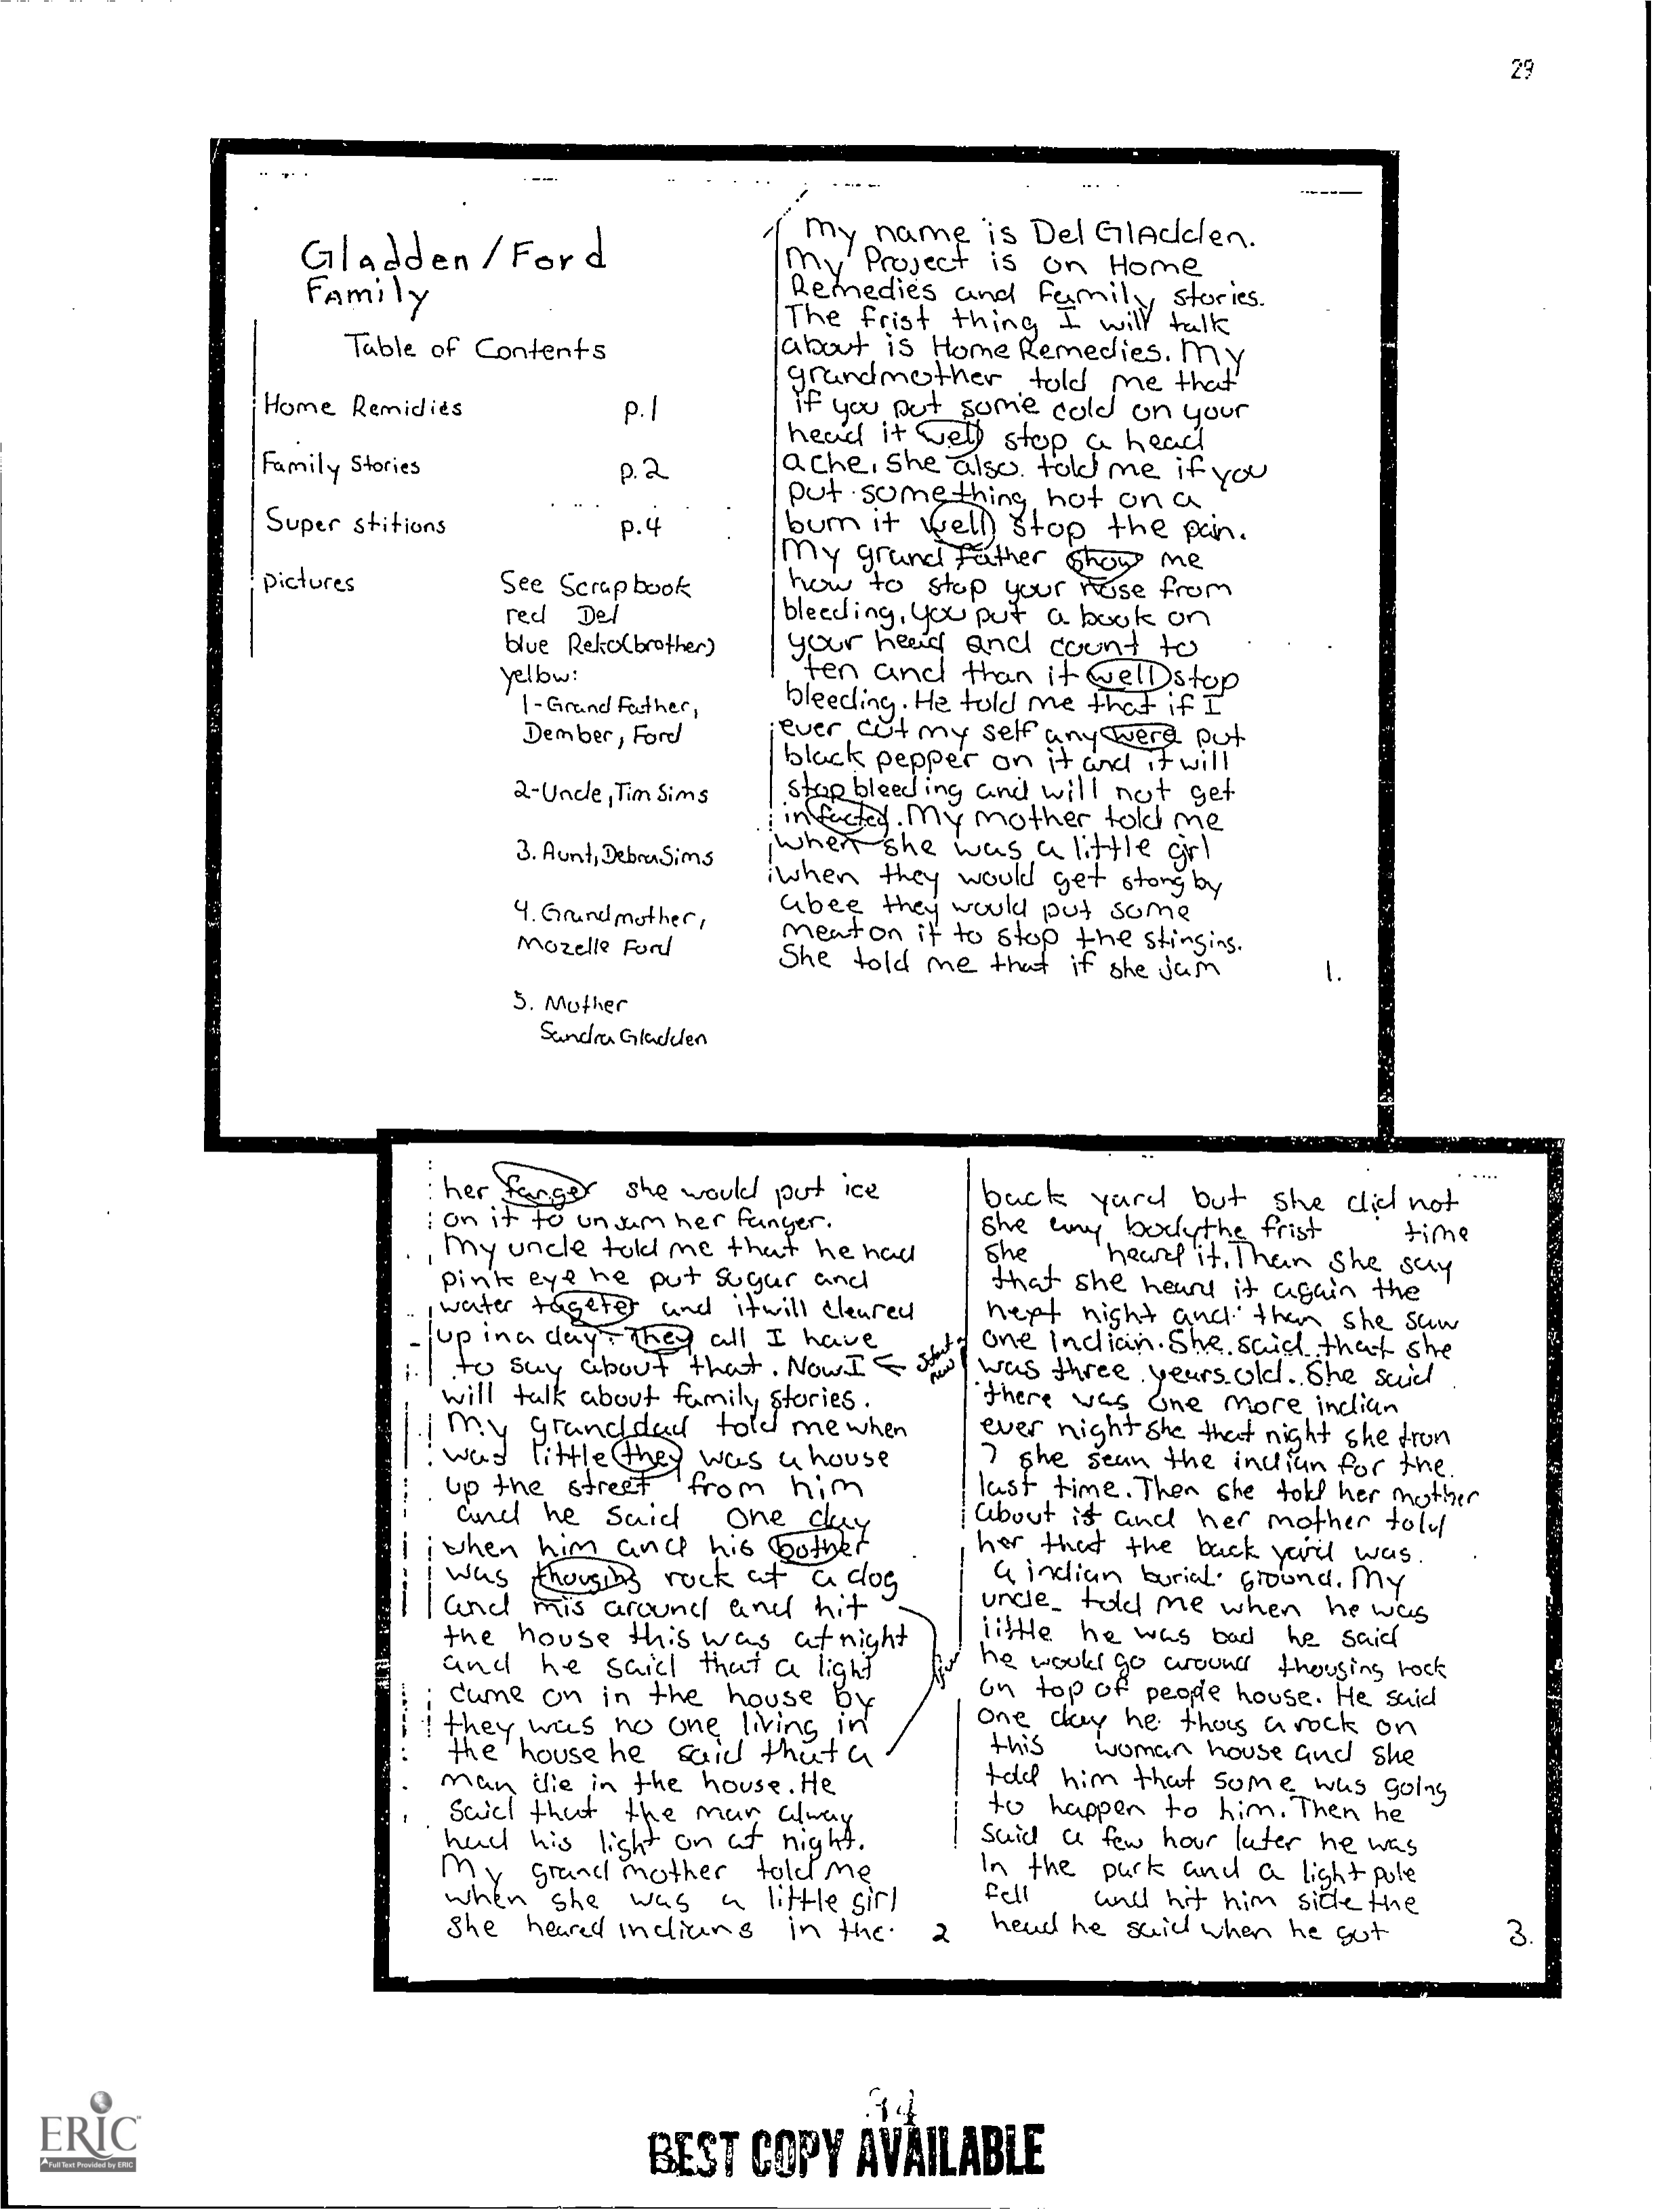 29
Gladden/Ford
Family
Table of Contents
Home Remidies p.1
Family Stories p.2
Super stitions p.4
pictures See Scrapbook
red Del
blue Reko(brother)
yellow:
1-Grand Father,
Dember, Ford
2-Uncle, Tim Sims
3. Aunt, Debra Sims
4. Grandmother,
Mozelle Ford
5. Mother
Sandra Gladden
My name is Del Gladden.
My Project is on Home
Remedies and Family stories.
The frist thing I will talk
about is Home Remedies. My
grandmother told me that
if you put some cold on your
head it well stop a head
ache. She also told me if you
put something hot on a
burn it well stop the pain.
My grand Father show me
how to stop your nose from
bleeding, you put a book on
your head and count to
ten and than it well stop
bleeding. He told me that if I
ever cut my self any were put
black pepper on it and it will
stop bleeding and will not get
infacted. My mother told me
when she was a little girl
when they would get stong by
a bee they would put some
meat on it to stop the stinging.
She told me that if she jam
1.
her fanger she would put ice
on it to unjam her fanger.
My uncle told me that he had
pink eye he put sugar and
water tageter and it will cleared
up in a day. They all I have
to say about that. Now I ← start new
will talk about family stories.
My granddad told me when
was little they was a house
up the street from him
and he said one day
when him and his bother
was thousing rock at a dog
and mis around and hit
the house this was at night
and he said that a light
came on in the house by
they was no one living in
the house he said that a
man die in the house. He
said that the man alway
had his light on at night.
My grand mother told me
when she was a little girl
she heared indians in the
2
back yard but she did not
she eny body the frist time
she heard it. Then she say
that she heard it again the
next night and then she saw
one Indian. She said that she
was three years old. She said
there was one more indian
ever night she that night she tron
7 she sean the indian for the
last time. Then she told her mother
about it and her mother told
her that the back yard was
a indian burial ground. My
uncle told me when he was
little he was bad he said
he would go around thousing rock
on top of people house. He said
one day he thous a rock on
this woman house and she
told him that some was going
to happen to him. Then he
said a few hour later he was
In the park and a light pole
fell and hit him side the
head he said when he got
3.
ERIC
Full Text Provided by ERIC
BEST COPY AVAILABLE